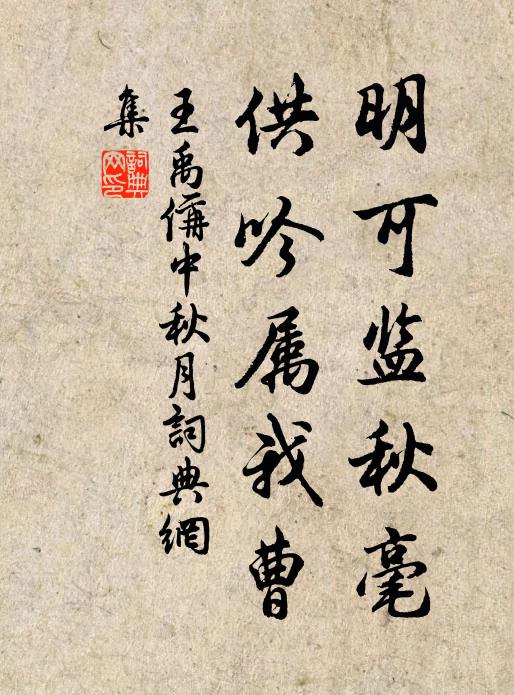 明可监秋毫
供吟属我曹
王禹偁中秋月詞典網
集
詞典
网印